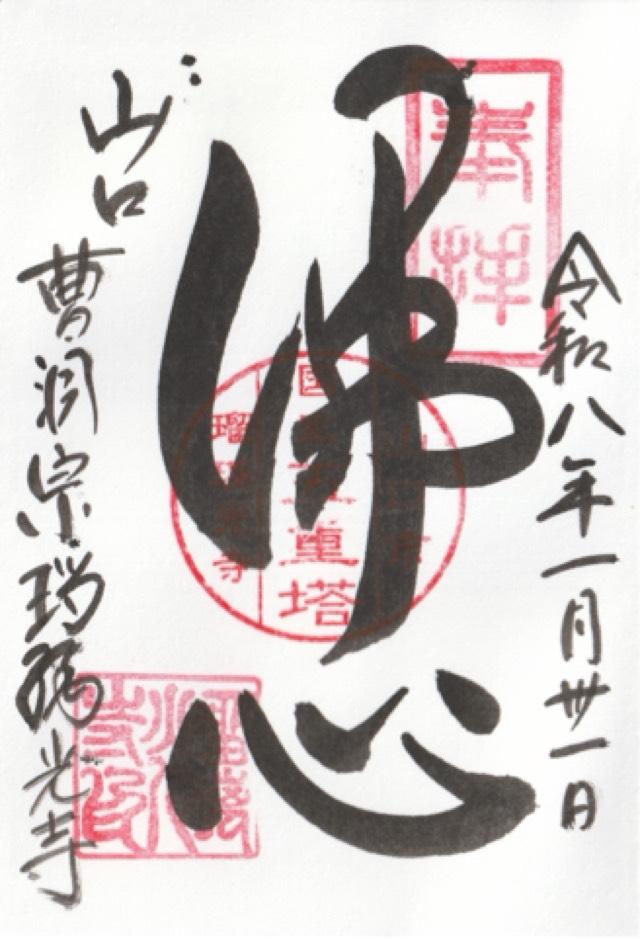 奉拝
令和八年一月卅一日
佛心
国宝五重塔
瑠璃光寺
山口
曹洞宗瑠璃光寺